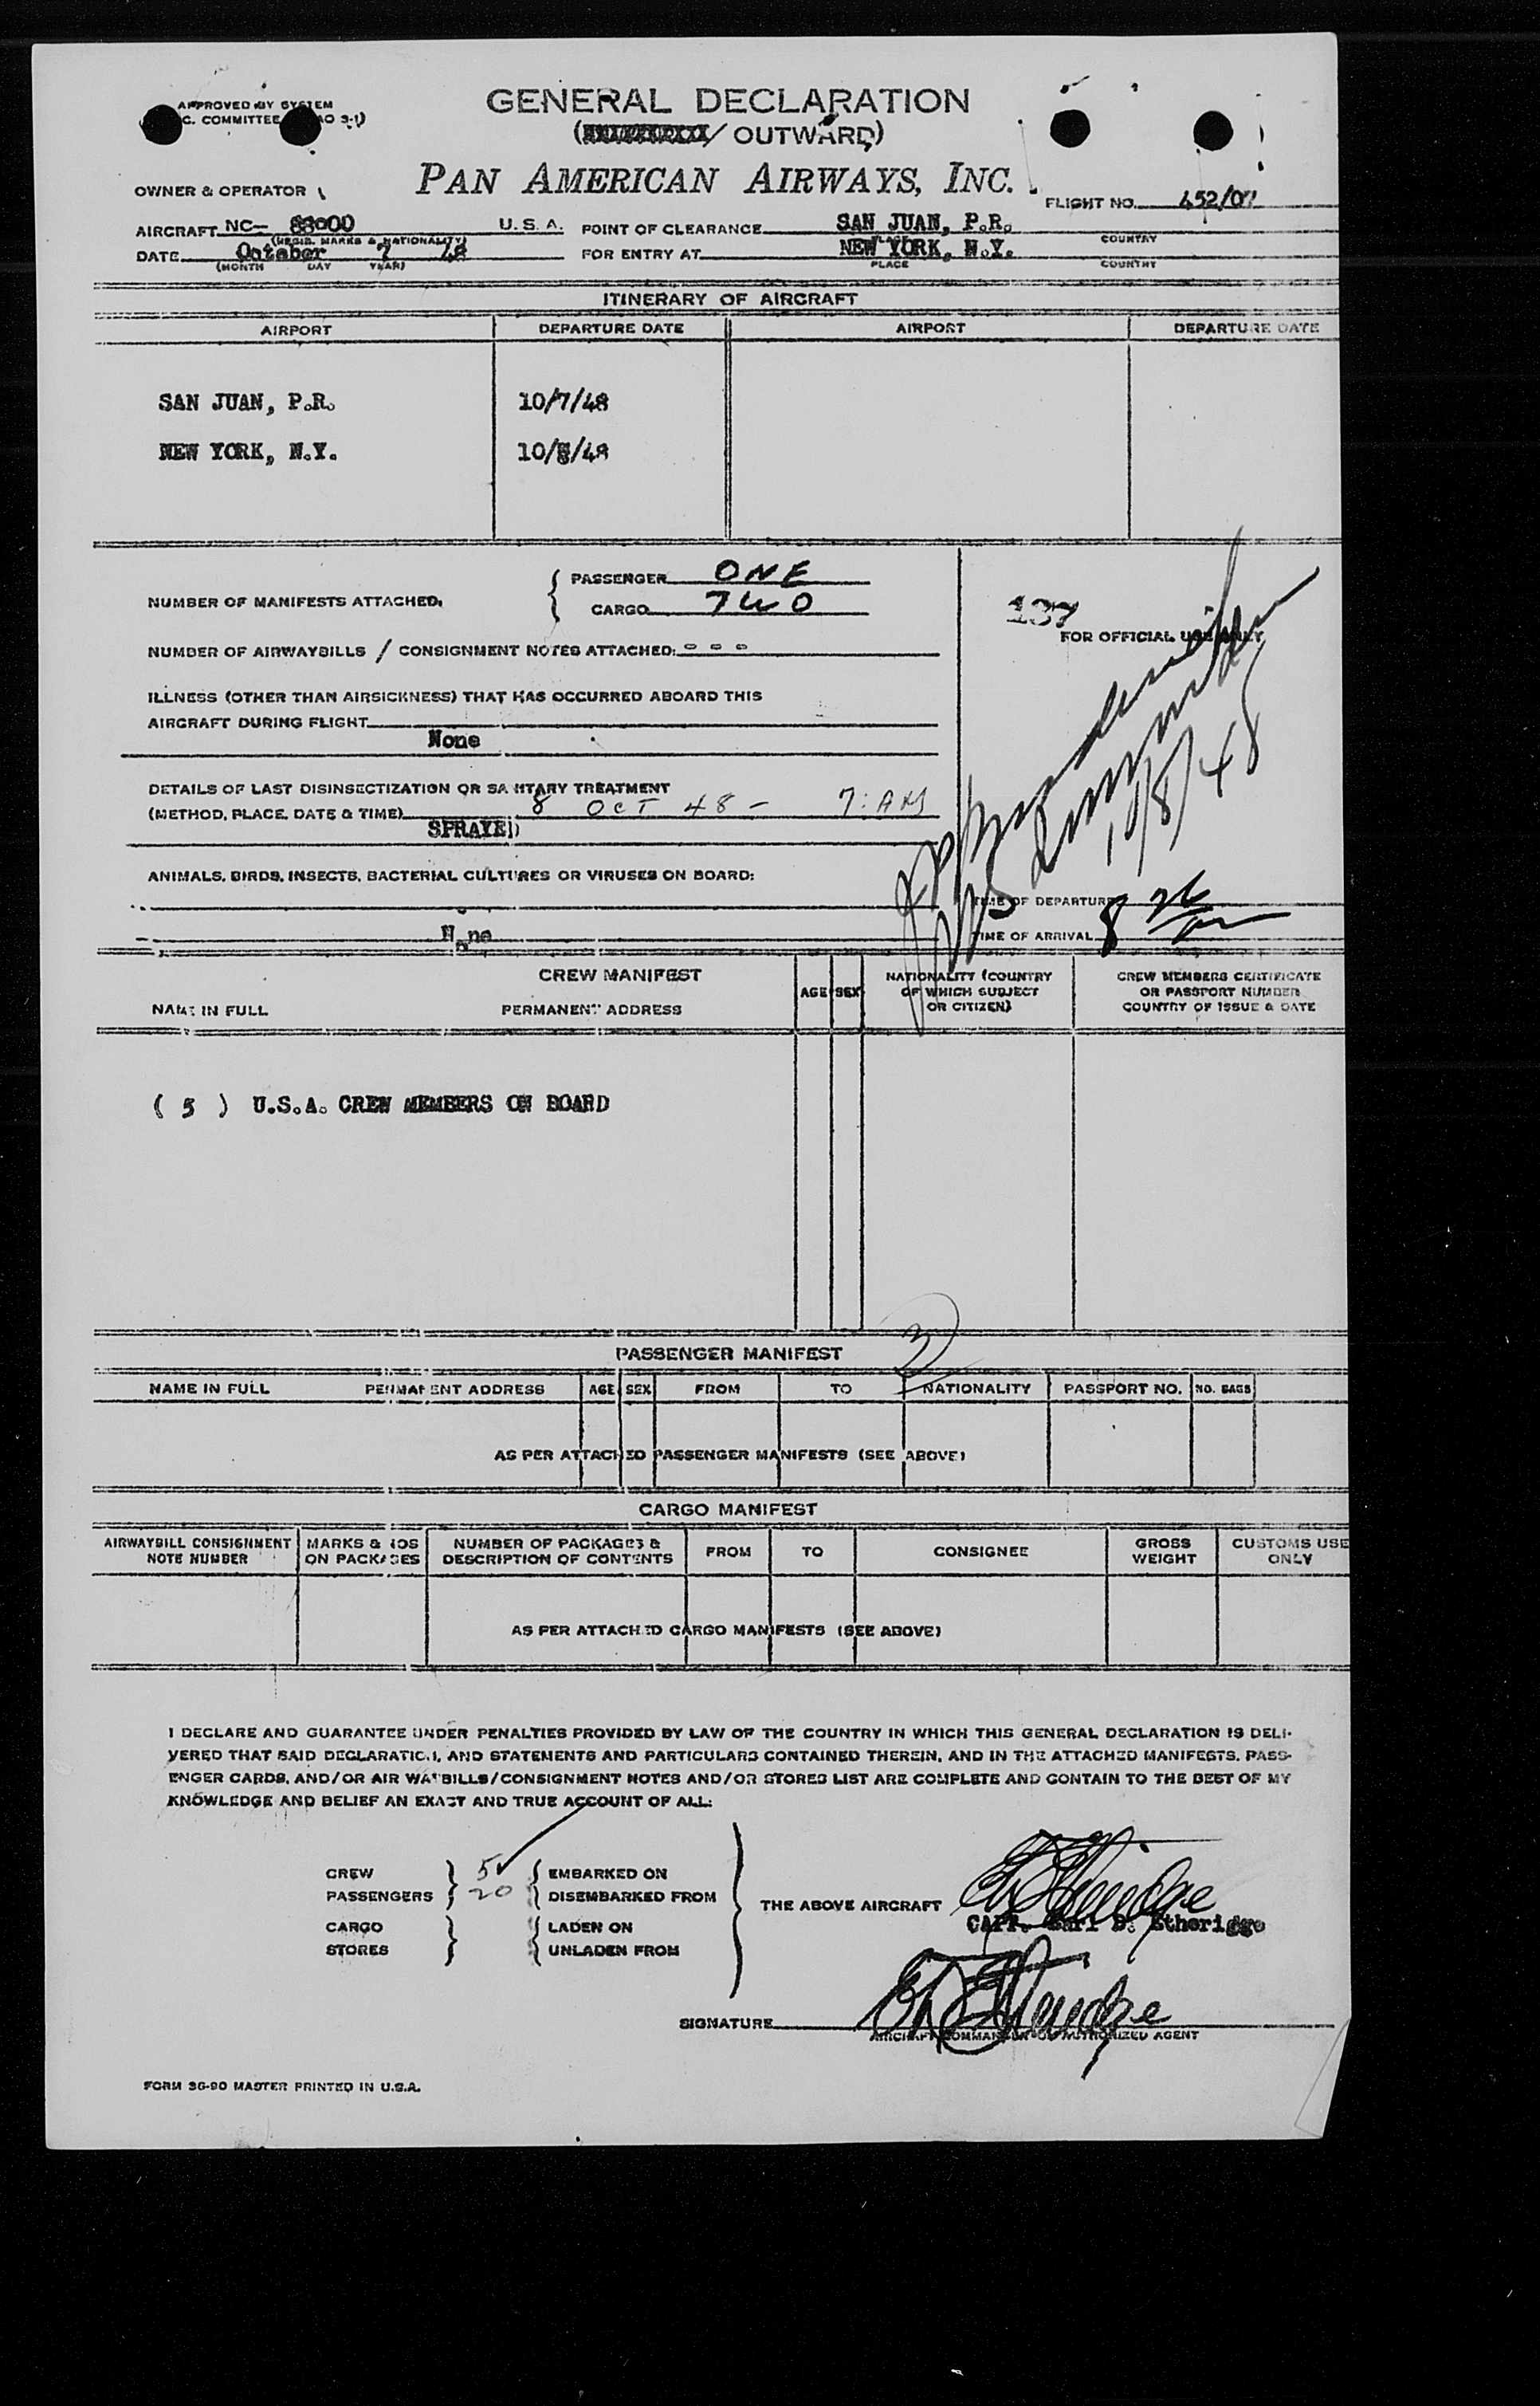 GENERAL DECLARATION
APPROVED BY SYSTEM
C. COMMITTEE
OUTWARD)
PAN AMERICAN AIRWAYS, INC.
OWNER & OPERATOR
FLIGHT NO. 452/07
AIRCRAFT NC- 88000 U.S.A. POINT OF CLEARANCE SAN JUAN, P.R.
(REGIS. MARKS & NATIONALITY) COUNTRY
DATE October 7 48 FOR ENTRY AT NEW YORK, N.Y.
(MONTH DAY YEAR) PLACE COUNTRY
ITINERARY OF AIRCRAFT
AIRPORT DEPARTURE DATE AIRPORT DEPARTURE DATE
SAN JUAN, P.R. 10/7/48
NEW YORK, N.Y. 10/8/48
NUMBER OF MANIFESTS ATTACHED, { PASSENGER ONE
CARGO TWO
137
FOR OFFICIAL USE ONLY
NUMBER OF AIRWAYBILLS / CONSIGNMENT NOTES ATTACHED: - - -
ILLNESS (OTHER THAN AIRSICKNESS) THAT HAS OCCURRED ABOARD THIS
AIRCRAFT DURING FLIGHT
None
10/8/48
DETAILS OF LAST DISINSECTIZATION OR SANITARY TREATMENT
(METHOD, PLACE, DATE & TIME) 8 OCT 48 - 7:AM
SPRAYED
ANIMALS, BIRDS, INSECTS, BACTERIAL CULTURES OR VIRUSES ON BOARD:
TIME OF DEPARTURE
None
TIME OF ARRIVAL 8 26
CREW MANIFEST
NAME IN FULL PERMANENT ADDRESS AGE SEX NATIONALITY (COUNTRY OF WHICH SUBJECT OR CITIZEN) CREW MEMBERS CERTIFICATE OR PASSPORT NUMBER COUNTRY OF ISSUE & DATE
( 5 ) U.S.A. CREW MEMBERS ON BOARD
PASSENGER MANIFEST
NAME IN FULL PERMANENT ADDRESS AGE SEX FROM TO NATIONALITY PASSPORT NO. NO. BAGS
AS PER ATTACHED PASSENGER MANIFESTS (SEE ABOVE)
CARGO MANIFEST
AIRWAYBILL CONSIGNMENT NOTE NUMBER MARKS & NOS ON PACKAGES NUMBER OF PACKAGES & DESCRIPTION OF CONTENTS FROM TO CONSIGNEE GROSS WEIGHT CUSTOMS USE ONLY
AS PER ATTACHED CARGO MANIFESTS (SEE ABOVE)
I DECLARE AND GUARANTEE UNDER PENALTIES PROVIDED BY LAW OF THE COUNTRY IN WHICH THIS GENERAL DECLARATION IS DELI-
VERED THAT SAID DECLARATION, AND STATEMENTS AND PARTICULARS CONTAINED THEREIN, AND IN THE ATTACHED MANIFESTS, PASS-
ENGER CARDS, AND/OR AIR WAYBILLS/CONSIGNMENT NOTES AND/OR STORES LIST ARE COMPLETE AND CONTAIN TO THE BEST OF MY
KNOWLEDGE AND BELIEF AN EXACT AND TRUE ACCOUNT OF ALL:
CREW 5 EMBARKED ON
PASSENGERS 20 DISEMBARKED FROM
THE ABOVE AIRCRAFT
CARGO LADEN ON
CAPT. Earl D. Etheridge
STORES UNLADEN FROM
SIGNATURE
AIRCRAFT COMMANDER OR AUTHORIZED AGENT
FORM 36-90 MASTER PRINTED IN U.S.A.